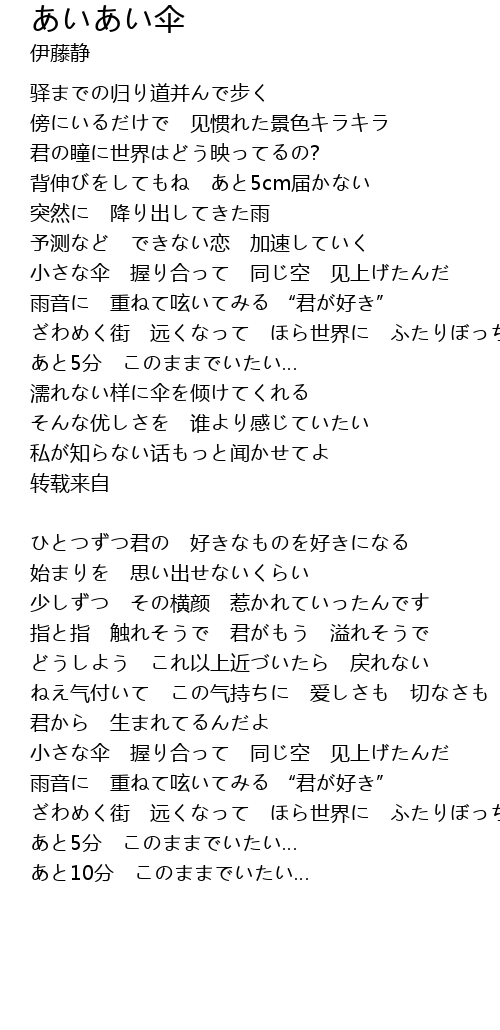 あいあい伞
伊藤静
驿までの归り道并んで步く
傍にいるだけで　见惯れた景色キラキラ
君の瞳に世界はどう映ってるの?
背伸びをしてもね　あと5cm届かない
突然に　降り出してきた雨
予测など　できない恋　加速していく
小さな伞　握り合って　同じ空　见上げたんだ
雨音に　重ねて呟いてみる　“君が好き”
ざわめく街　远くなって　ほら世界に　ふたりぼっち
あと5分　このままでいたい...
濡れない样に伞を倾けてくれる
そんな优しさを　谁より感じていたい
私が知らない话もっと闻かせてよ
转载来自
ひとつずつ君の　好きなものを好きになる
始まりを　思い出せないくらい
少しずつ　その横颜　惹かれていったんです
指と指　触れそうで　君がもう　溢れそうで
どうしよう　これ以上近づいたら　戾れない
ねえ气付いて　この气持ちに　爱しさも　切なさも
君から　生まれてるんだよ
小さな伞　握り合って　同じ空　见上げたんだ
雨音に　重ねて呟いてみる　“君が好き”
ざわめく街　远くなって　ほら世界に　ふたりぼっち
あと5分　このままでいたい...
あと10分　このままでいたい...